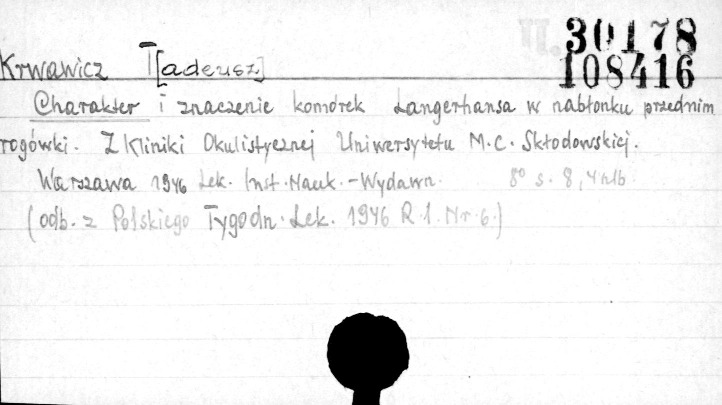 II. 30178
108416
Krwawicz T[adeusz]
Charakter i znaczenie komórek Langerhansa w nabłonku przednim
rogówki. Z Kliniki Okulistycznej Uniwersytetu M. C. Skłodowskiej.
Warszawa 1946 Lek. Inst. Nauk.-Wydawn. 8° s. 8, 4 nlb.
(odb. z Polskiego Tygodn. Lek. 1946 R.1. Nr 6.)